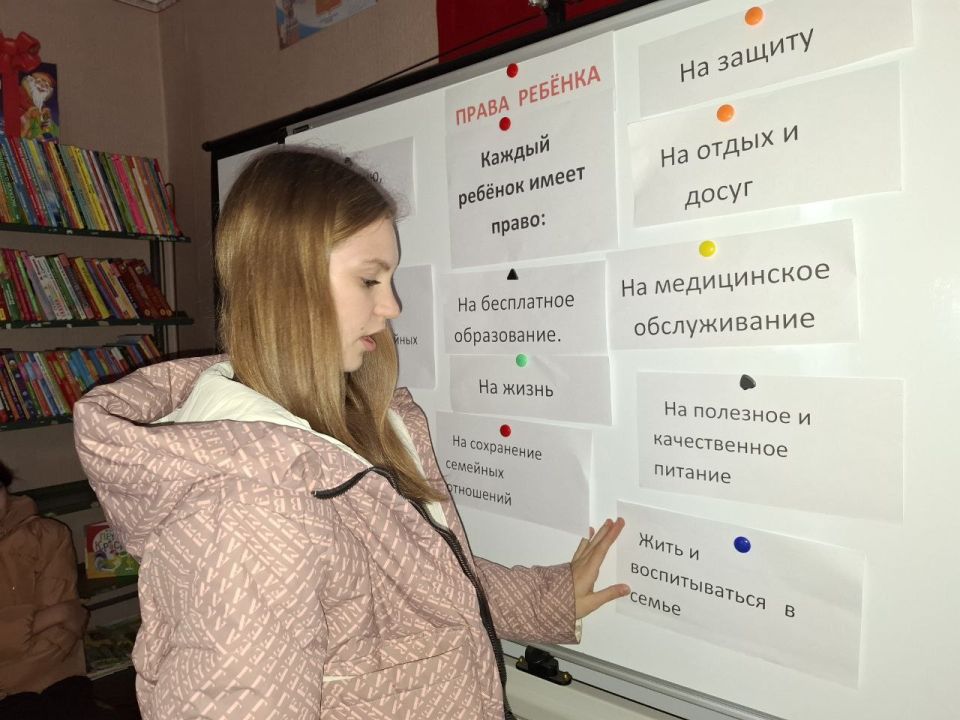 ПРАВА РЕБЁНКА
Каждый
ребёнок имеет
право:
На бесплатное
образование.
На жизнь
На сохранение
семейных
отношений
На защиту
На отдых и
досуг
На медицинское
обслуживание
На полезное и
качественное
питание
Жить и
воспитываться в
семье